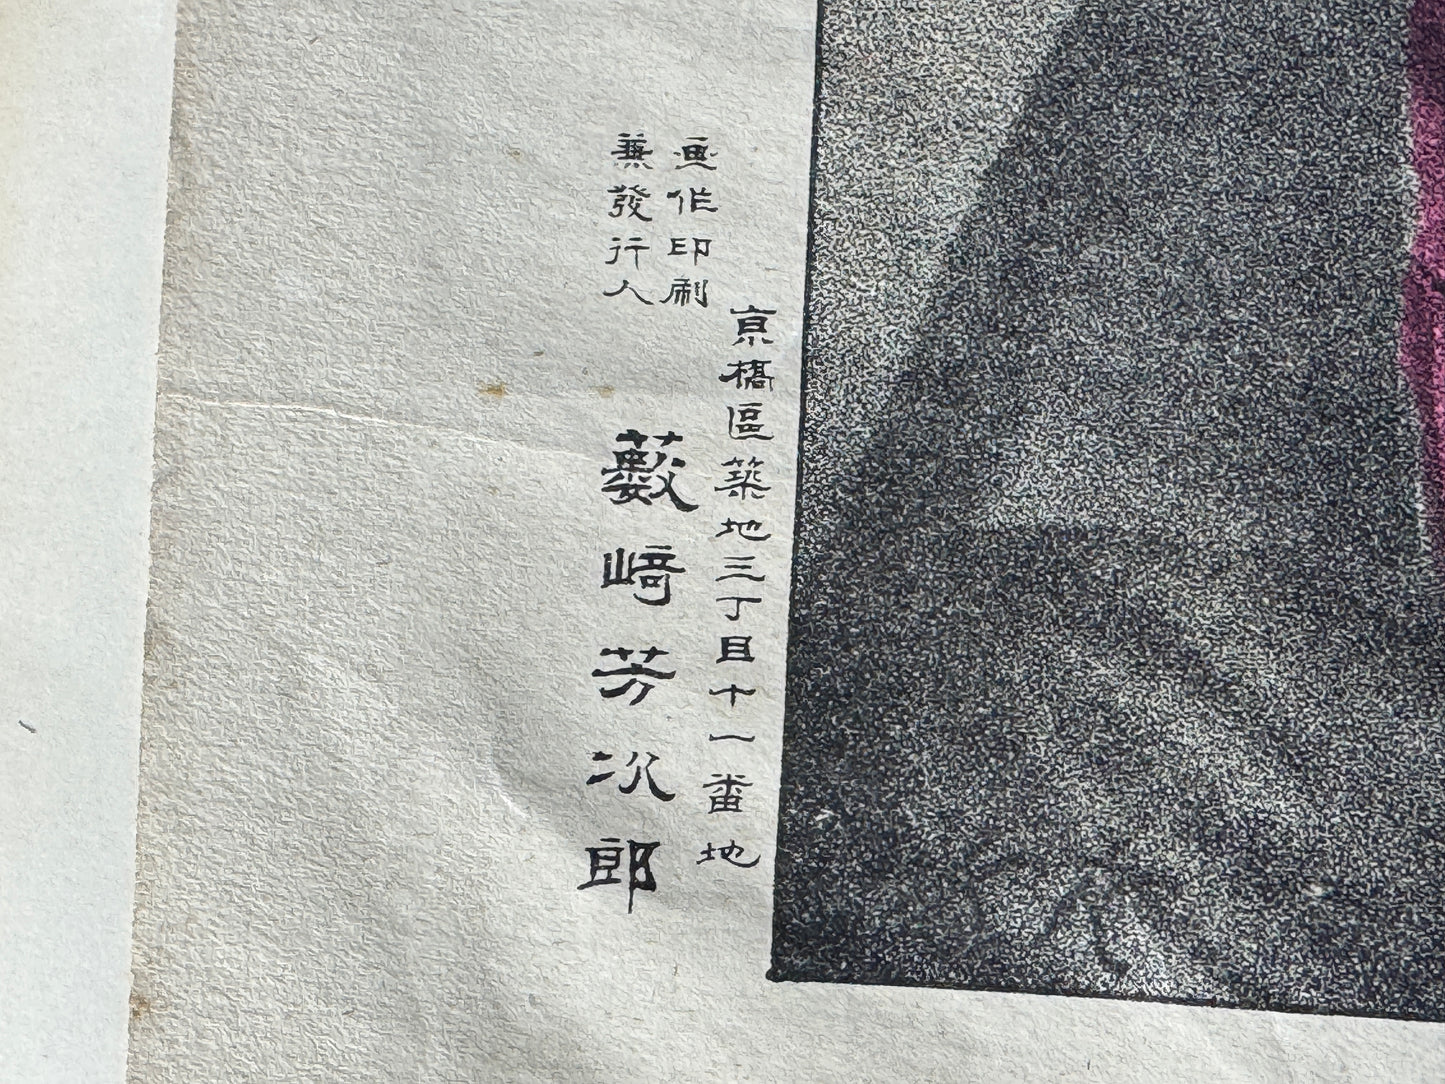 京橋區築地三丁目十一番地
画作印刷
兼發行人
藪﨑芳次郎